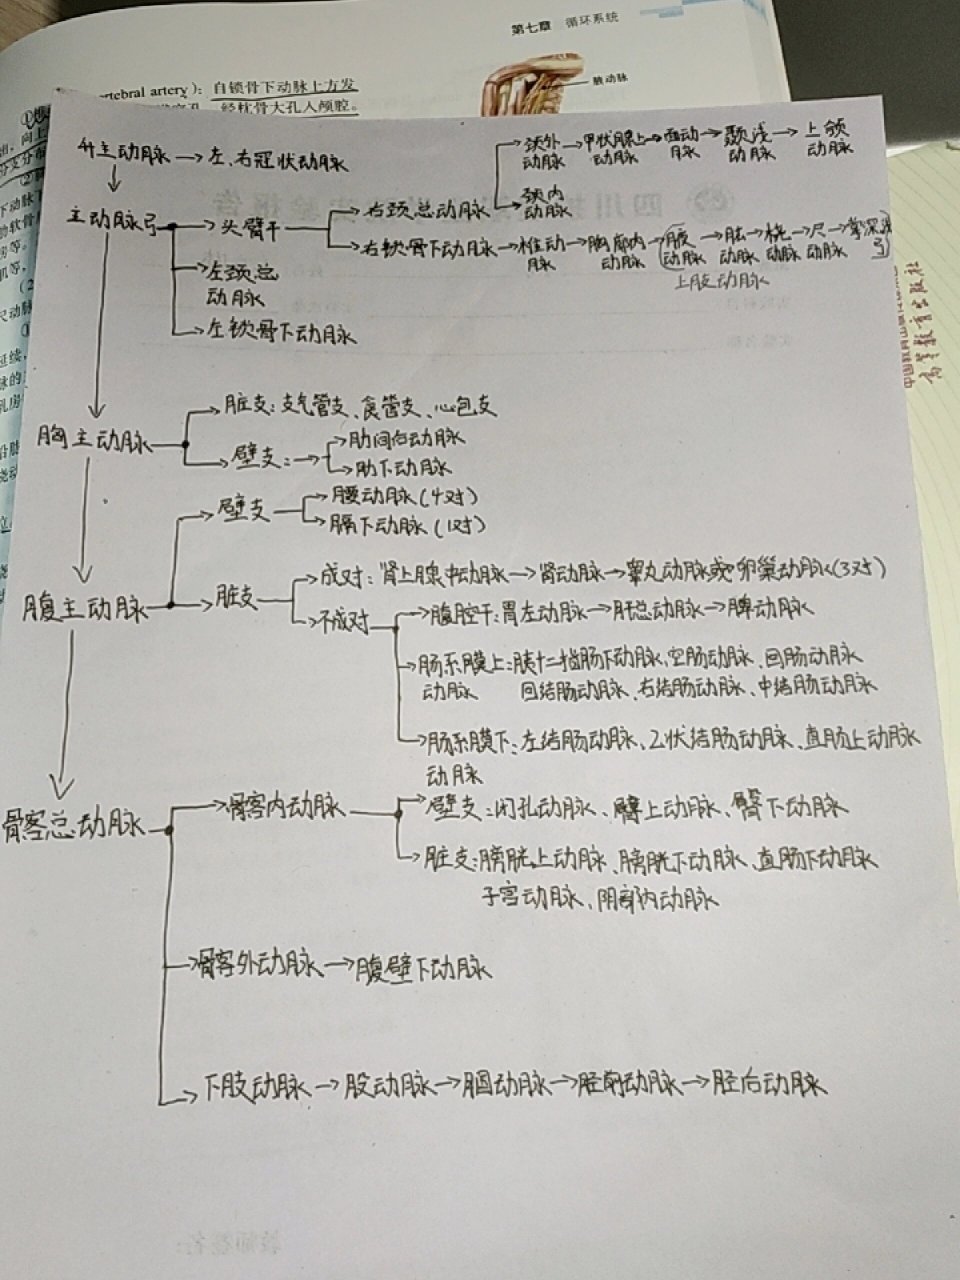 第七章 循环系统
rtebral artery）：自锁骨下动脉上方发
经枕骨大孔入颅腔。
腋动脉
升主动脉→左、右冠状动脉
颈外动脉→甲状腺上动脉→面动脉→颞浅动脉→上颌动脉
颈内动脉
主动脉弓
头臂干
右颈总动脉
右锁骨下动脉→椎动脉→胸廓内动脉→腋动脉→肱动脉→桡动脉→尺动脉→掌深浅弓
上肢动脉
左颈总动脉
左锁骨下动脉
中国教育出版传媒
高等教育出版社
胸主动脉
脏支：支气管支、食管支、心包支
壁支：
肋间后动脉
肋下动脉
腹主动脉
壁支
腰动脉(4对)
膈下动脉(1对)
脏支
成对：肾上腺中动脉→肾动脉→睾丸动脉或卵巢动脉(3对)
不成对
腹腔干：胃左动脉→肝总动脉→脾动脉
肠系膜上动脉：胰十二指肠下动脉、空肠动脉、回肠动脉
回结肠动脉、右结肠动脉、中结肠动脉
肠系膜下动脉：左结肠动脉、乙状结肠动脉、直肠上动脉
髂总动脉
髂内动脉
壁支：闭孔动脉、臀上动脉、臀下动脉
脏支：膀胱上动脉、膀胱下动脉、直肠下动脉
子宫动脉、阴部内动脉
髂外动脉→腹壁下动脉
下肢动脉→股动脉→腘动脉→胫前动脉→胫后动脉